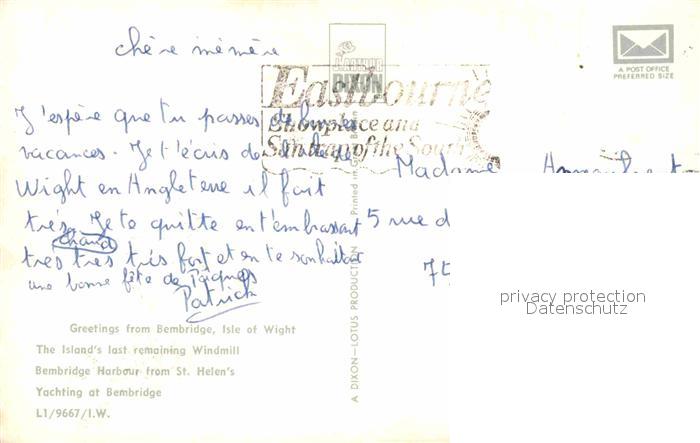 chère mémère
J'espère que tu passes de bonnes
vacances. Je t'écris de l'île de
Wight en Angleterre il fait
très chaud. Je te quitte en t'embrassant
très très très fort et en te souhaitant
une bonne fête de Pâques
Patrick
Greetings from Bembridge, Isle of Wight
The Island's last remaining Windmill
Bembridge Harbour from St. Helen's
Yachting at Bembridge
L1/9667/I.W.
J. ARTHUR
DIXON
Eastbourne
Showplace and
Suntrap of the South
A DIXON—LOTUS PRODUCTION
Printed in Great Britain
A POST OFFICE
PREFERRED SIZE
Madame
5 rue d
75
privacy protection
Datenschutz